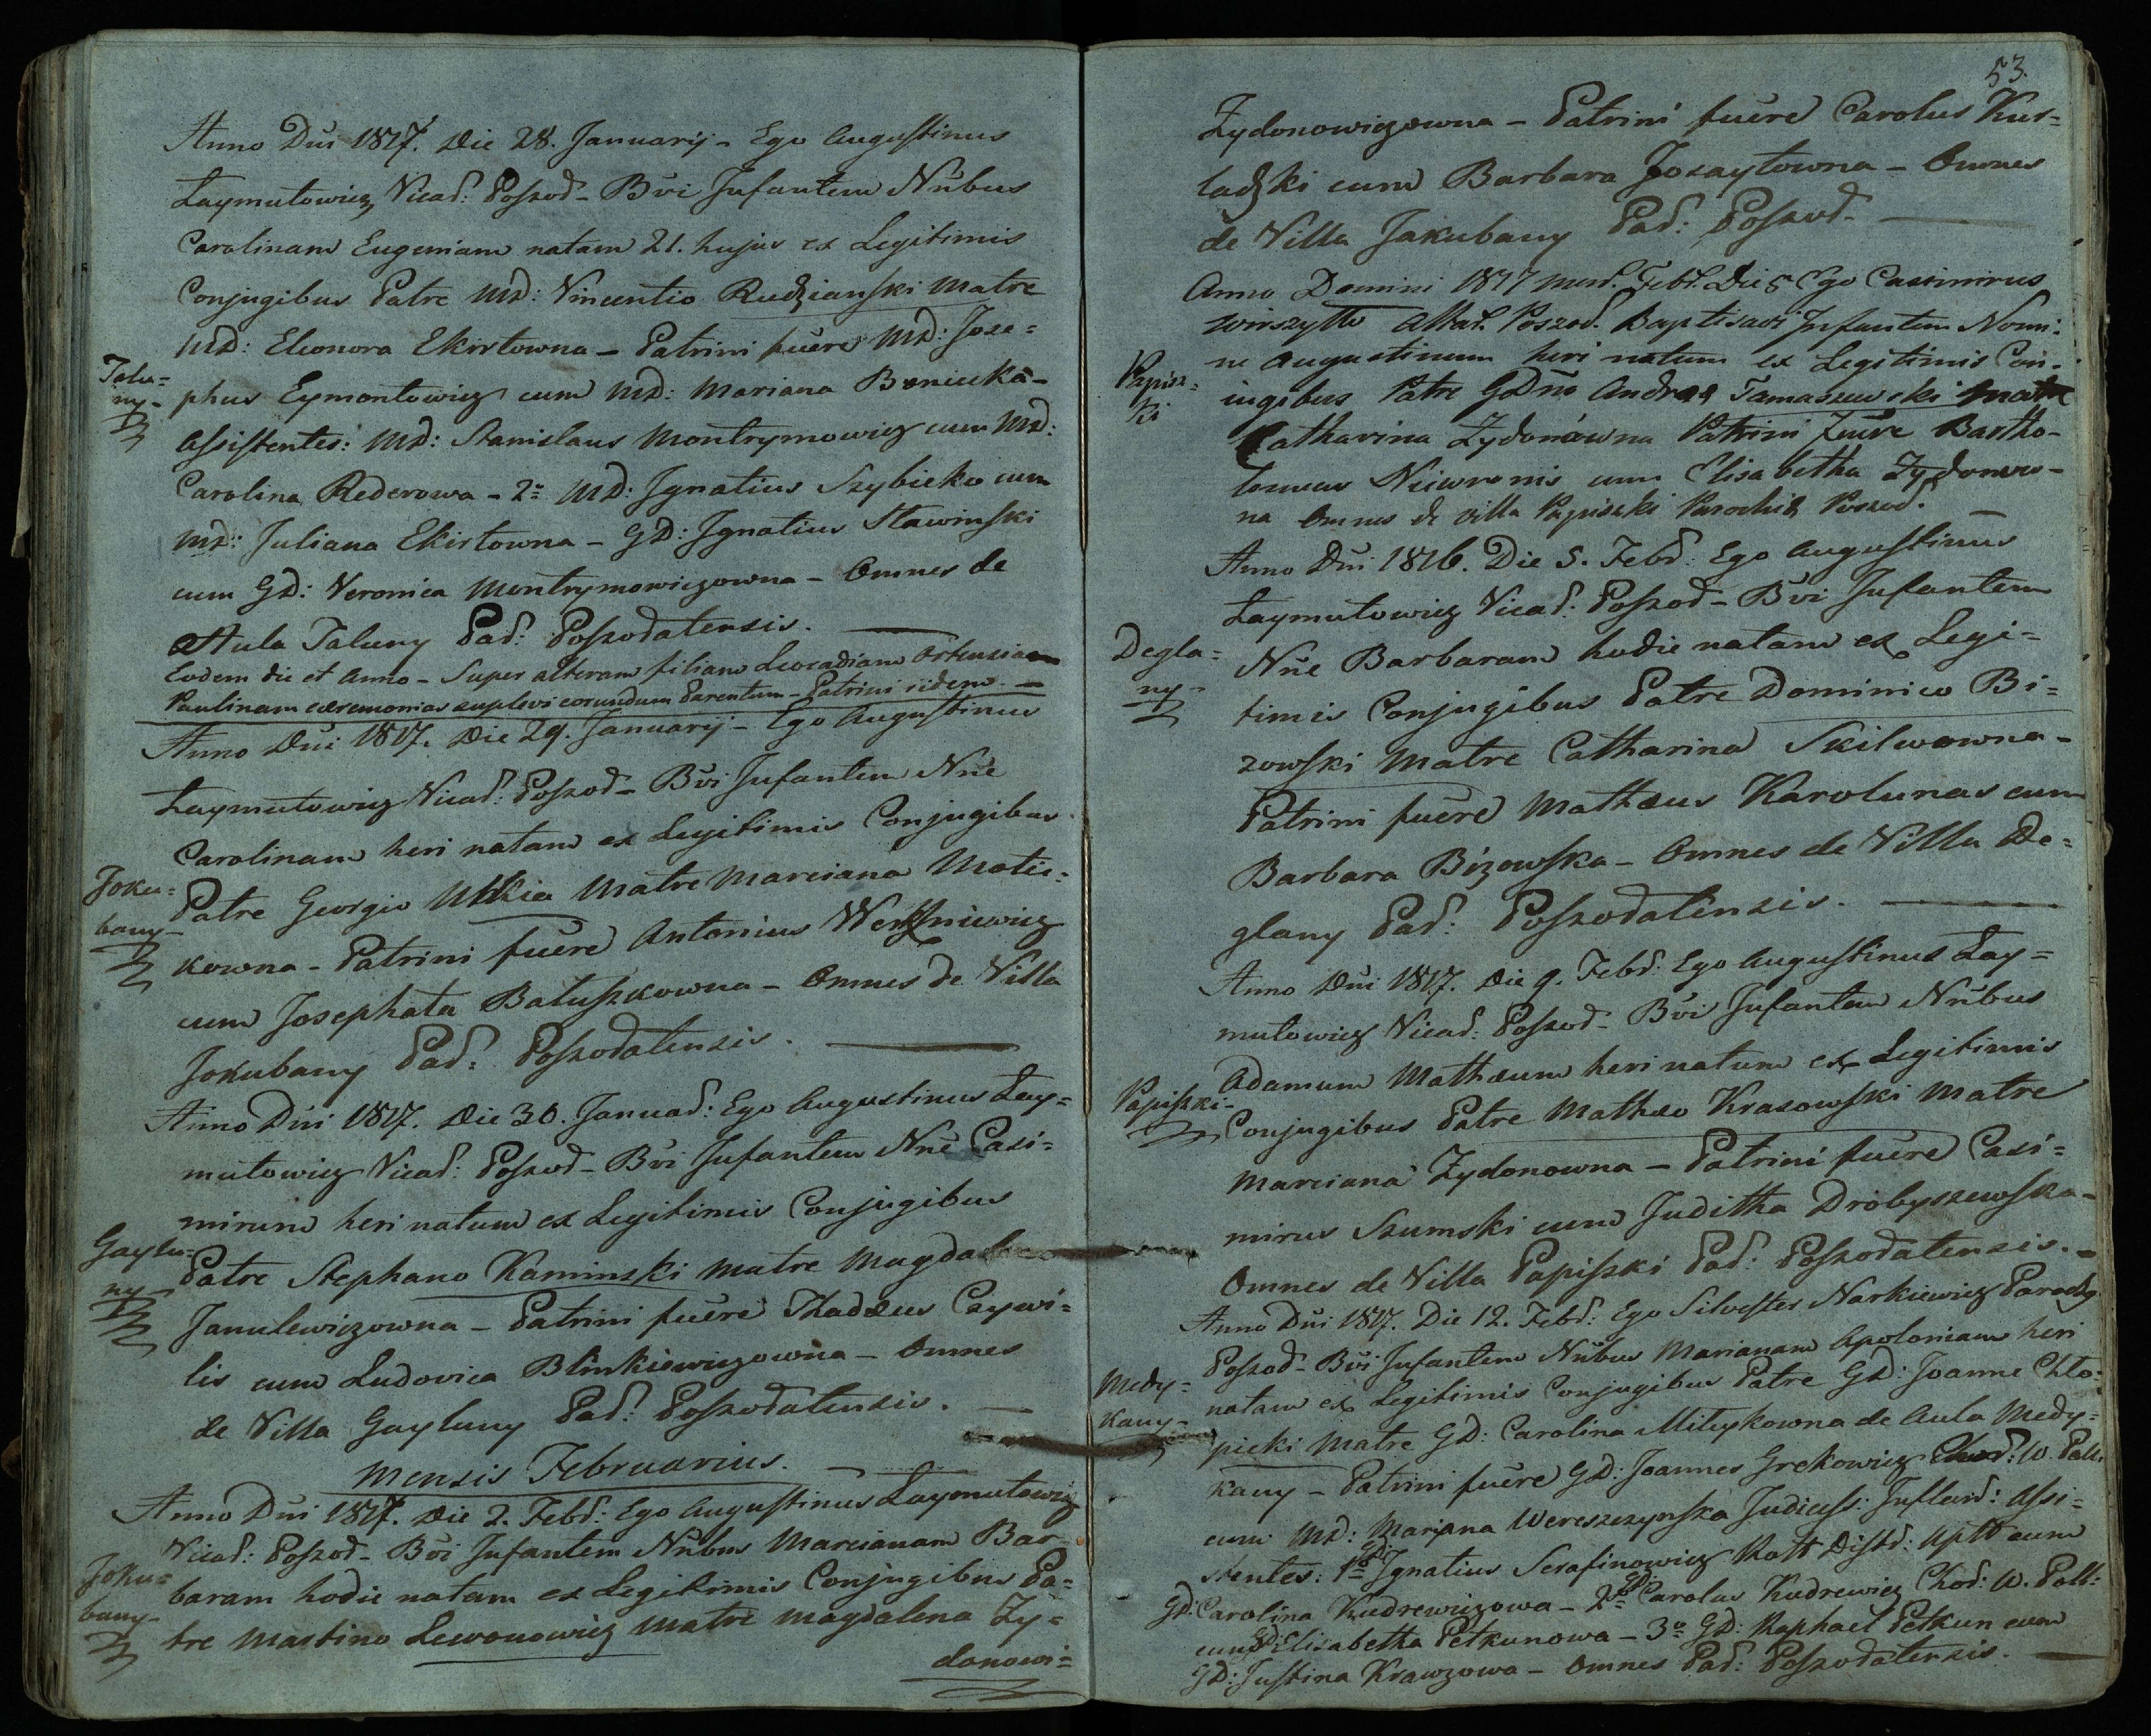 Anno Dni 1817. Die 28. Januarij - Ego Augustinus
Laymutowicz Vicar: Poszod - Bvi Infantem Nnbus
Carolinam Eugeniam natam 21. hujus ex Legitimis
Conjugibus Patre MD: Vincentio Rudzianski Matre
MD: Eleonora Ekirtowna - Patrini fuere MD: Jose=
Talu=
ny-
phus Eymontowicz cum MD: Mariana
Assistentes: MD: Stanislaus Montrymowicz cum MD:
Carolina Rederowa - 2º MD: Ignatius Szybicko cum
MD: Juliana Ekirtowna - GD: Ignatius Stawinski
cum GD: Veronica Montrymowiczowna - Omnes de
Aula Taluny Par: Poszodatensis.
Eodem die et Anno - Super alteram filiam Leocadiam Ortensiam
Paulinam cæremonias suplevi eorundum Parentum - Patrini iidem. -
Anno Dni 1817. Die 29. Januarij - Ego Augustinus
Laymutowicz Vicar: Poszod - Bvi Infantem Nne
Carolinam heri natam ex Legitimis Conjugibus
Joku=
bany-
Patre Georgio Matre Marciana Matic=
kowna - Patrini fuere Antonius
cum Josephata Batuszkowna - Omnes de Villa
Jokubany Par: Poszodatensis.
Anno Dni 1817. Die 30. Januar: Ego Augustinus Lay=
mutowicz Vicar: Poszod - Bvi Infantem Nne Casi=
mirum heri natum ex Legitimis Conjugibus
Gaylu=
ny
Patre Stephano Kaminski Matre
Janulewiczowna - Patrini fuere Thadæus Czywi=
lis cum Ludovica Blinkiewiczowna - Omnes
de Villa Gayluny Par: Poszodatensis.
Mensis Februarius.
Anno Dni 1817. Die 2. Febr: Ego Augustinus Laymutowicz
Vicar: Poszod - Bvi Infantem Nnbus Marcianam Bar=
Joku=
bany-
baram hodie natam ex Legitimis Conjugibus Pa=
tre Martino Lewonowicz Matre Magdalena Zy=
donowi=
53.
Zydonowiczowna - Patrini fuere Carolus Kus=
ladzki cum Barbara Jozaytowna - Omnes
de Villa Jakubany Par: Poszod-
Anno Domini 1817 Mens. Febr. Die 5 Ego Casimirus
Wirszyłło Altar. Poszod. Baptisavi Infantem Nomi:
Papisz=
ki
ne Augustinum heri natum ex Legitimis Con-
iugibus Patre GDno Andrea Tamaszewski Matre
Catharina Zydonówna Patrini fuere Bartho-
lomeus Niewronis cum Elisabetha Zydonow-
na Omnes de villa Papiszki Parochiæ Poszod.
Anno Dni 1816. Die 5. Febr: Ego Augustinus
Laymutowicz Vicar: Poszod - Bvi Infantem
Degla=
ny-
Nne Barbaram hodie natam ex Legi=
timis Conjugibus Patre Dominico Bi=
zowski Matre Catharina Skilwowna-
Patrini fuere Mathæus Karolunas cum
Barbara Bizowska - Omnes de Villa De=
glany Par: Poszodatensis.
Anno Dni 1817. Die 9. Febr: Ego Augustinus Lay=
mutowicz Vicar: Poszod - Bvi Infantem Nnbus
Adamum Mathæum heri natum ex Legitimis
Papiszki-
Conjugibus Patre Mathæo Krasowski Matre
Marciana Zydonowna - Patrini fuere Casi=
mirus Szumski cum Juditha Drobyszewska-
Omnes de Villa Papiszki Par: Poszodatensis.-
Anno Dni 1817. Die 12. Febr: Ego Silvester Narkiewicz Paroch9
Poszod - Bvi Infantem Nnbus Marianam Apoloniam heri
Medy=
kany-
natam ex Legitimis Conjugibus Patre GD: Joanne Chło=
picki Matre GD: Carolina Mileykowna de Aula Medy=
kany - Patrini fuere GD: Joannes Grekowicz W. Pall.
cum MD: Marjana Wereszczynska Assi=
stentes: 1º GD: Ignatius Serafinowicz cum
GD: Carolina Kudrewiczowa - 2º GD: Carolus Kudrewicz Chor: W. Pall:
cum GD: Elisabetha Petkunowa - 3º GD: Raphael Petkun cum
GD: Justina Krawzowa - Omnes Par: Poszodatensis.